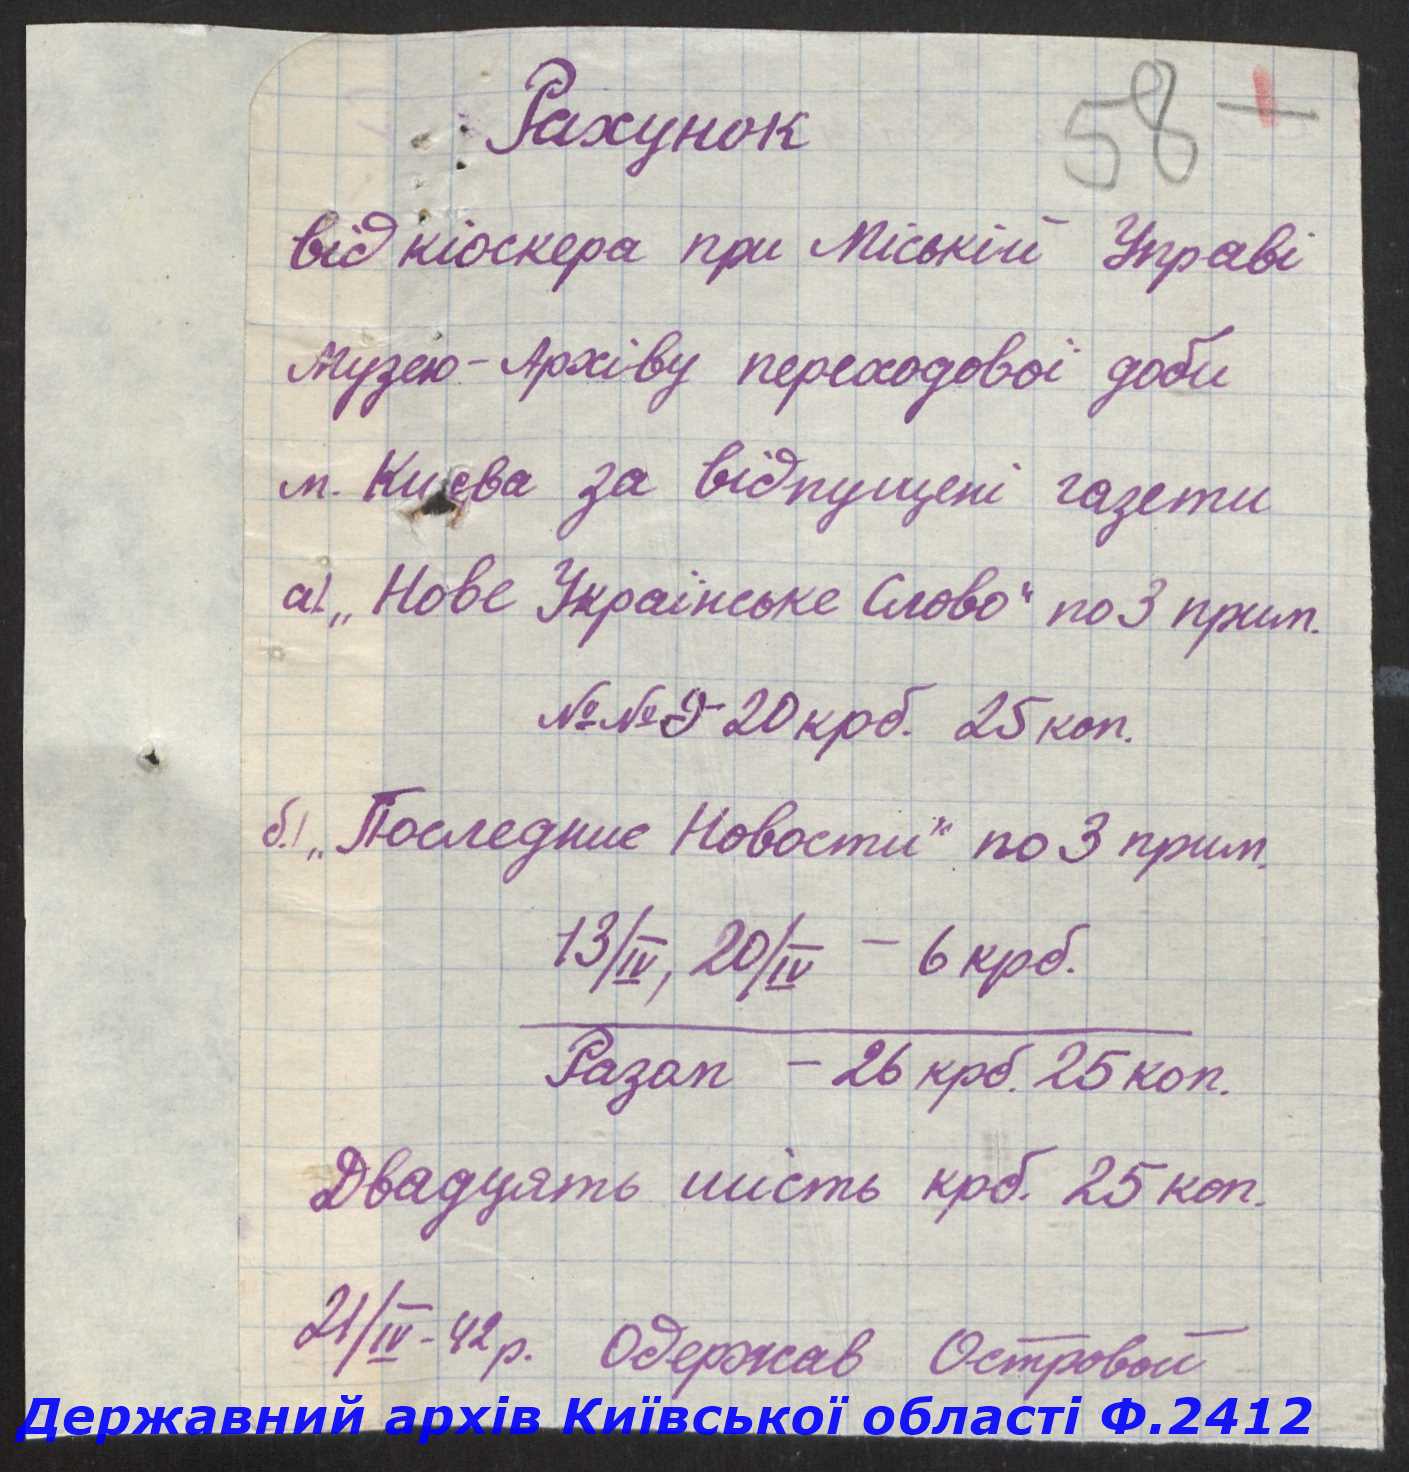 58
Рахунок
від кіоскера при Міській Управі
Музею-Архіву переходової доби
м. Києва за відпущені газети
а) „Нове Українське Слово" по 3 прим.
№№ 9 - 20 крб. 25 коп.
б.) „Последние Новости" по 3 прим.
13/IV, 20/IV – 6 крб.
Разом – 26 крб. 25 коп.
Двадцять шість крб. 25 коп.
21/IV-42 р. Одержав Островой
Державний архів Київської області Ф.2412